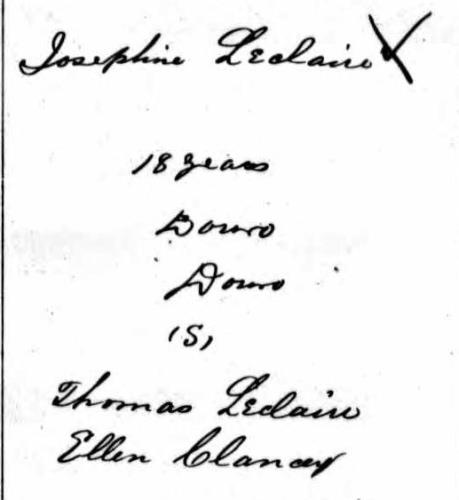 Josephine Leclaire
18 years
Douro
Douro
(S)
Thomas Leclaire
Ellen Clancey